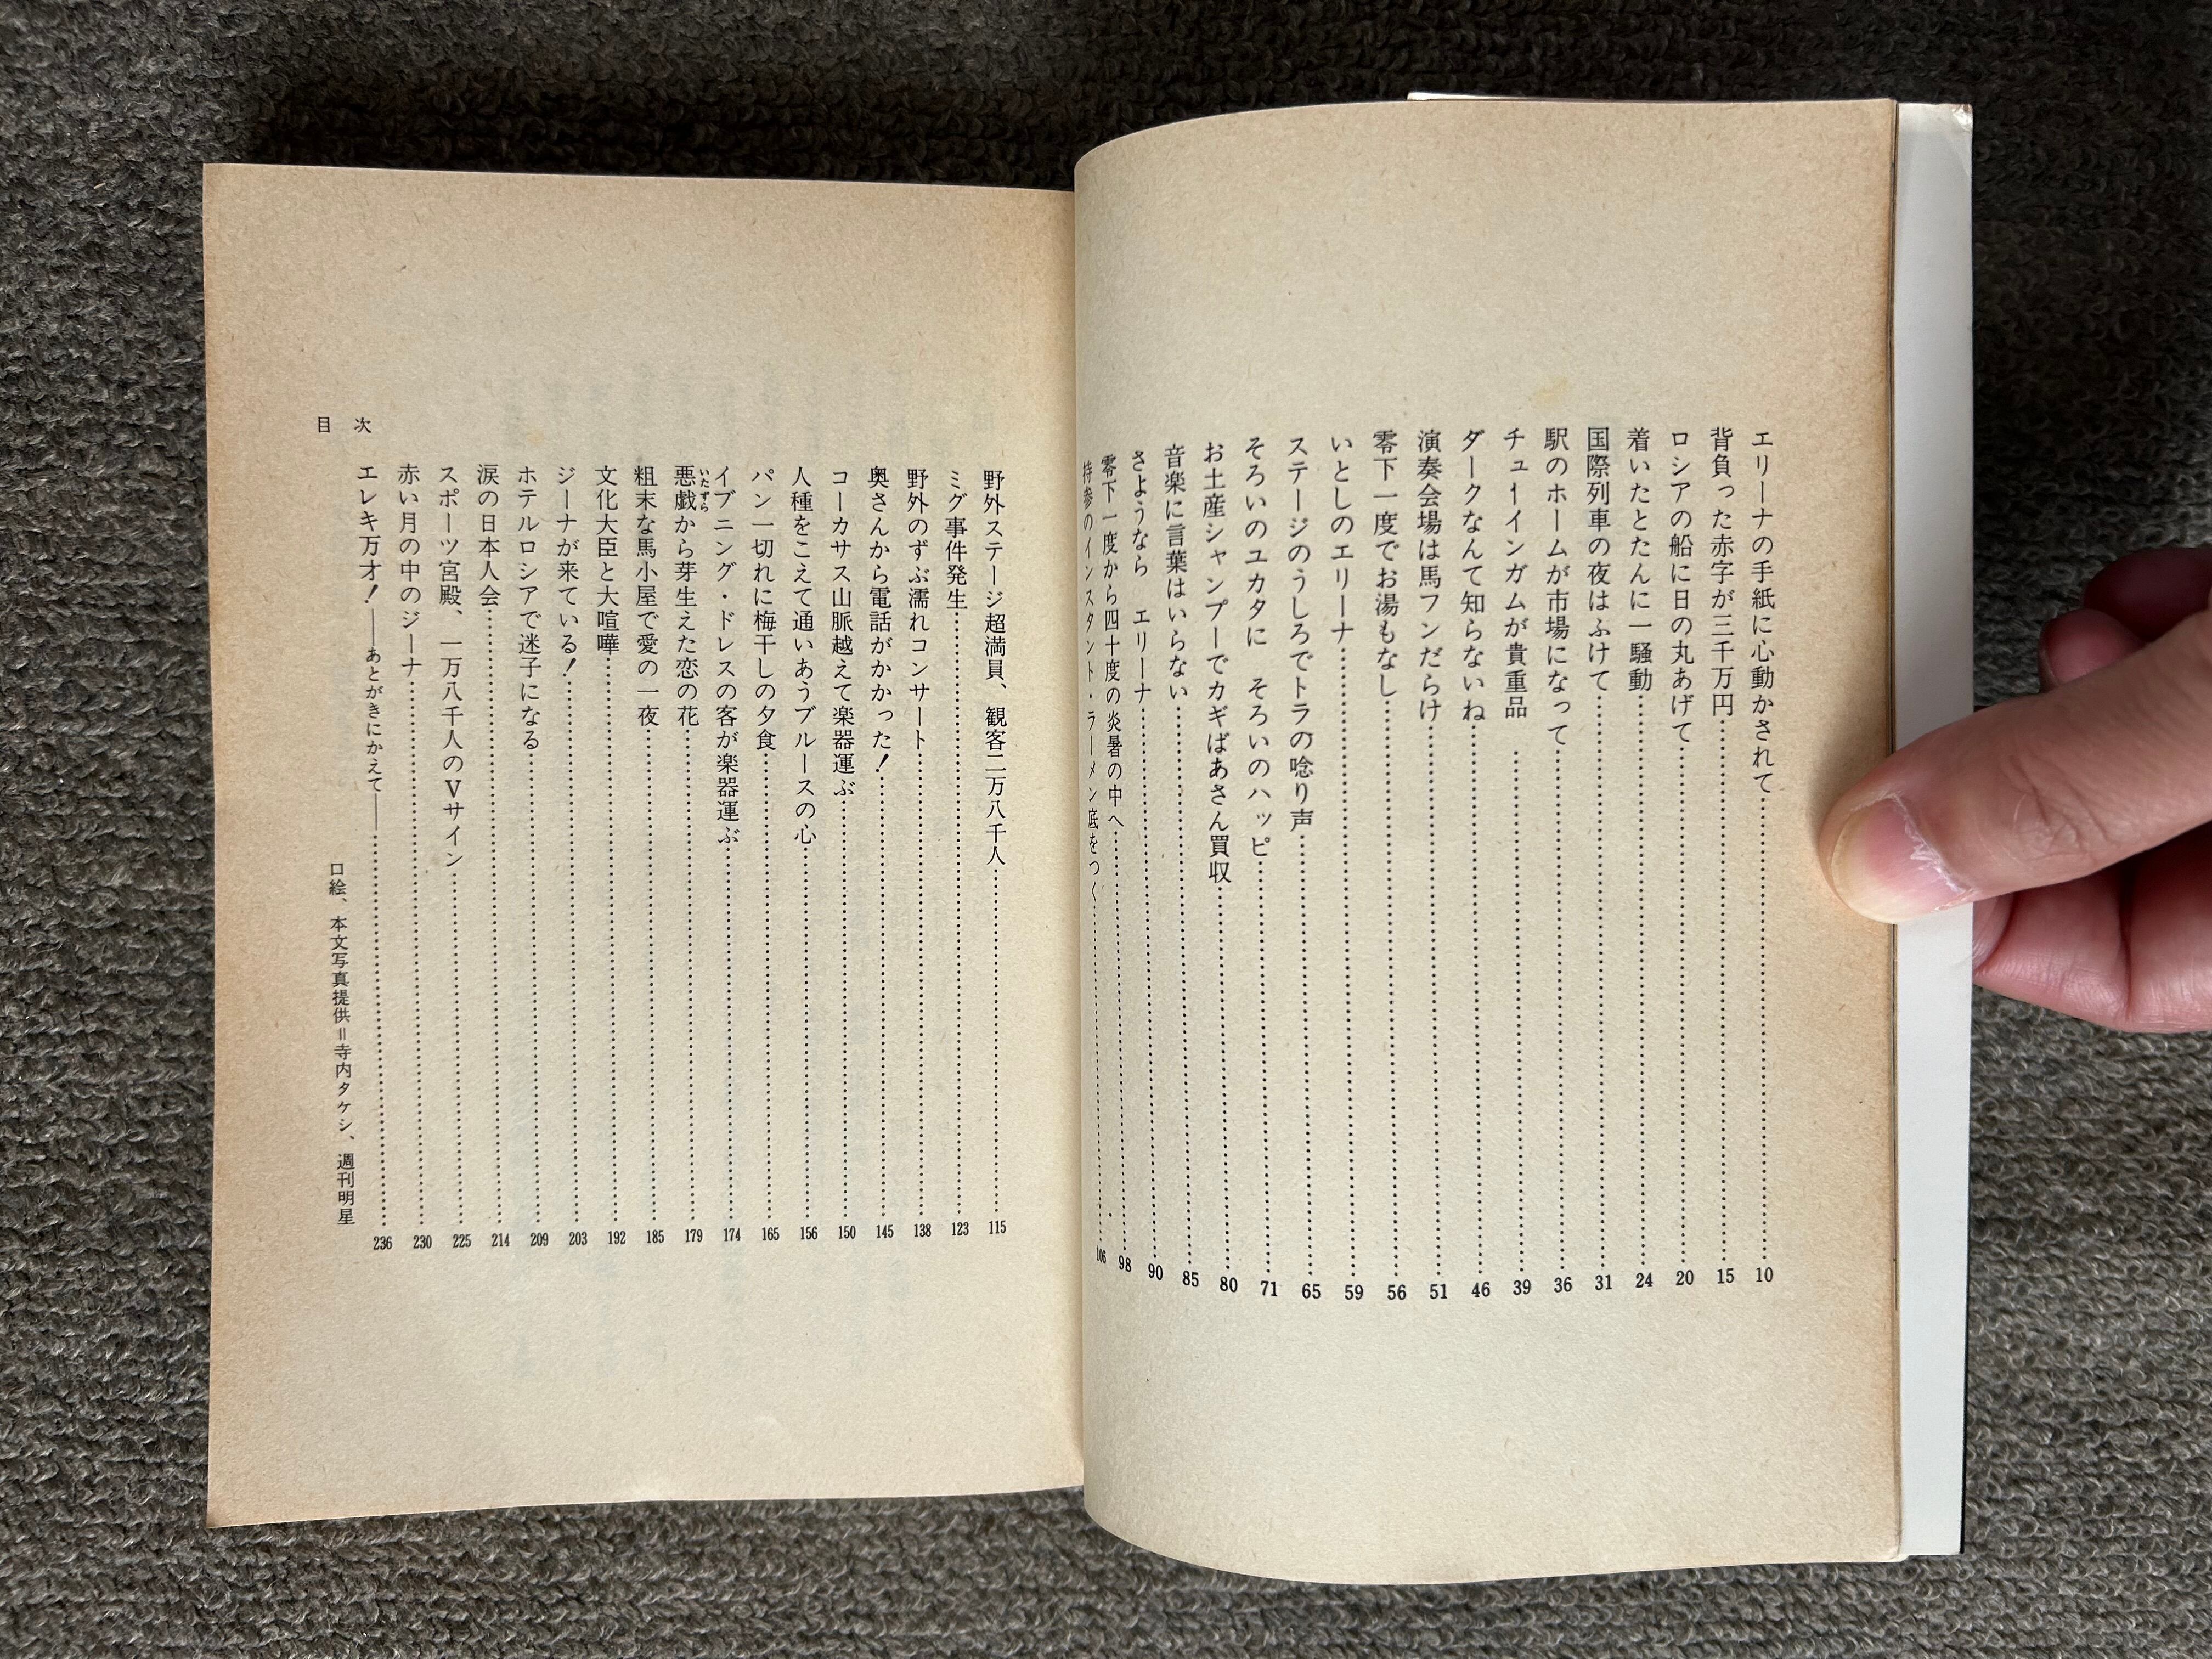 エリーナの手紙に心動かされて……10
背負った赤字が三千万円……15
ロシアの船に日の丸あげて……20
着いたとたんに一騒動……24
国際列車の夜はふけて……31
駅のホームが市場になって……36
チューインガムが貴重品……39
ダークなんて知らないね……46
演奏会場は馬フンだらけ……51
零下一度でお湯もなし……56
いとしのエリーナ……59
ステージのうしろでトラの唸り声……65
そろいのユカタに　そろいのハッピ……71
お土産シャンプーでカギばあさん買収……80
音楽に言葉はいらない……85
さようなら　エリーナ……90
零下一度から四十度の炎暑の中へ……98
持参のインスタント・ラーメン底をつく……106
野外ステージ超満員、観客二万八千人……115
ミグ事件発生……123
野外のずぶ濡れコンサート……138
奥さんから電話がかかった！……145
コーカサス山脈越えて楽器運ぶ……150
人種をこえて通いあうブルースの心……156
パン一切れに梅干しの夕食……165
イブニング・ドレスの客が楽器運ぶ……174
悪戯いたずらから芽生えた恋の花……179
粗末な馬小屋で愛の一夜……185
文化大臣と大喧嘩……192
ジーナが来ている！……203
ホテルロシアで迷子になる……209
涙の日本人会……214
スポーツ宮殿、一万八千人のVサイン……225
赤い月の中のジーナ……230
エレキ万才！——あとがきにかえて——……236
目次
口絵、本文写真提供＝寺内タケシ、週刊明星